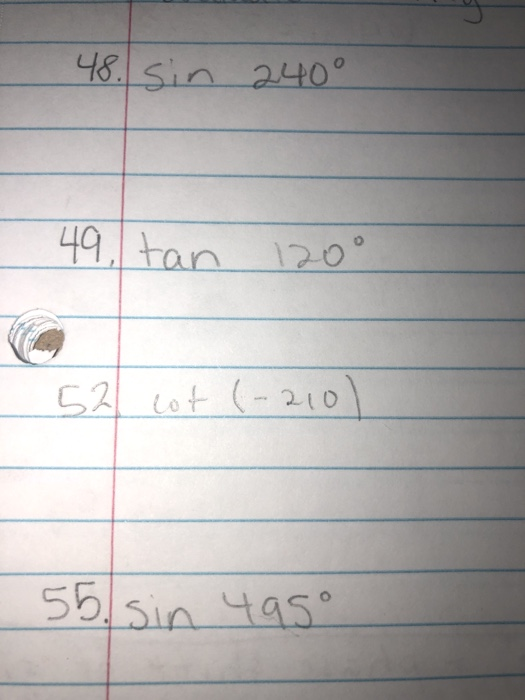 48. sin 240°
49. tan 120°
52. cot (-210)
55. sin 495°